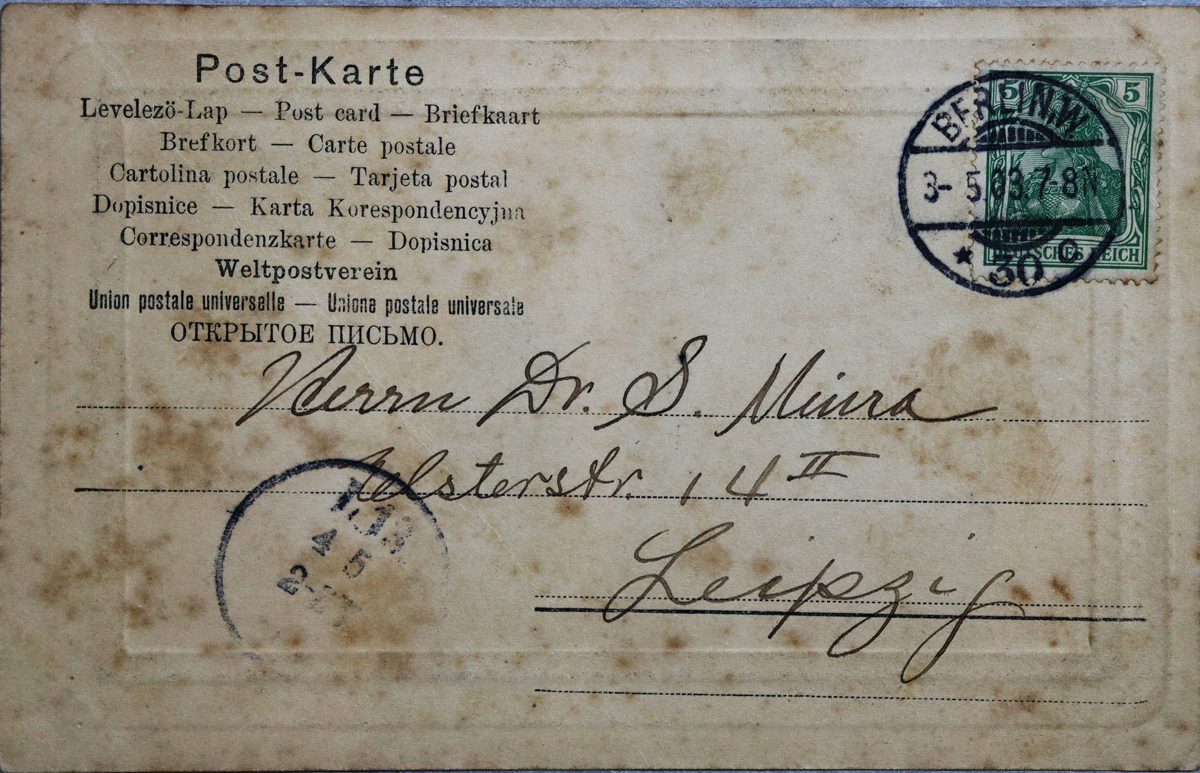 Post-Karte
Levelezö-Lap — Post card — Briefkaart
Brefkort — Carte postale
Cartolina postale — Tarjeta postal
Dopisnice — Karta Korespondencyjna
Correspondenzkarte — Dopisnica
Weltpostverein
Union postale universelle — Unione postale universale
ОТКРЫТОЕ ПИСЬМО.
5 5
DEUTSCHES REICH
BERLIN.W
3-5 03.7-8N
* 30 c
Herrn Dr. S. Miura
Elsterstr. 14 II
Leipzig
4 5